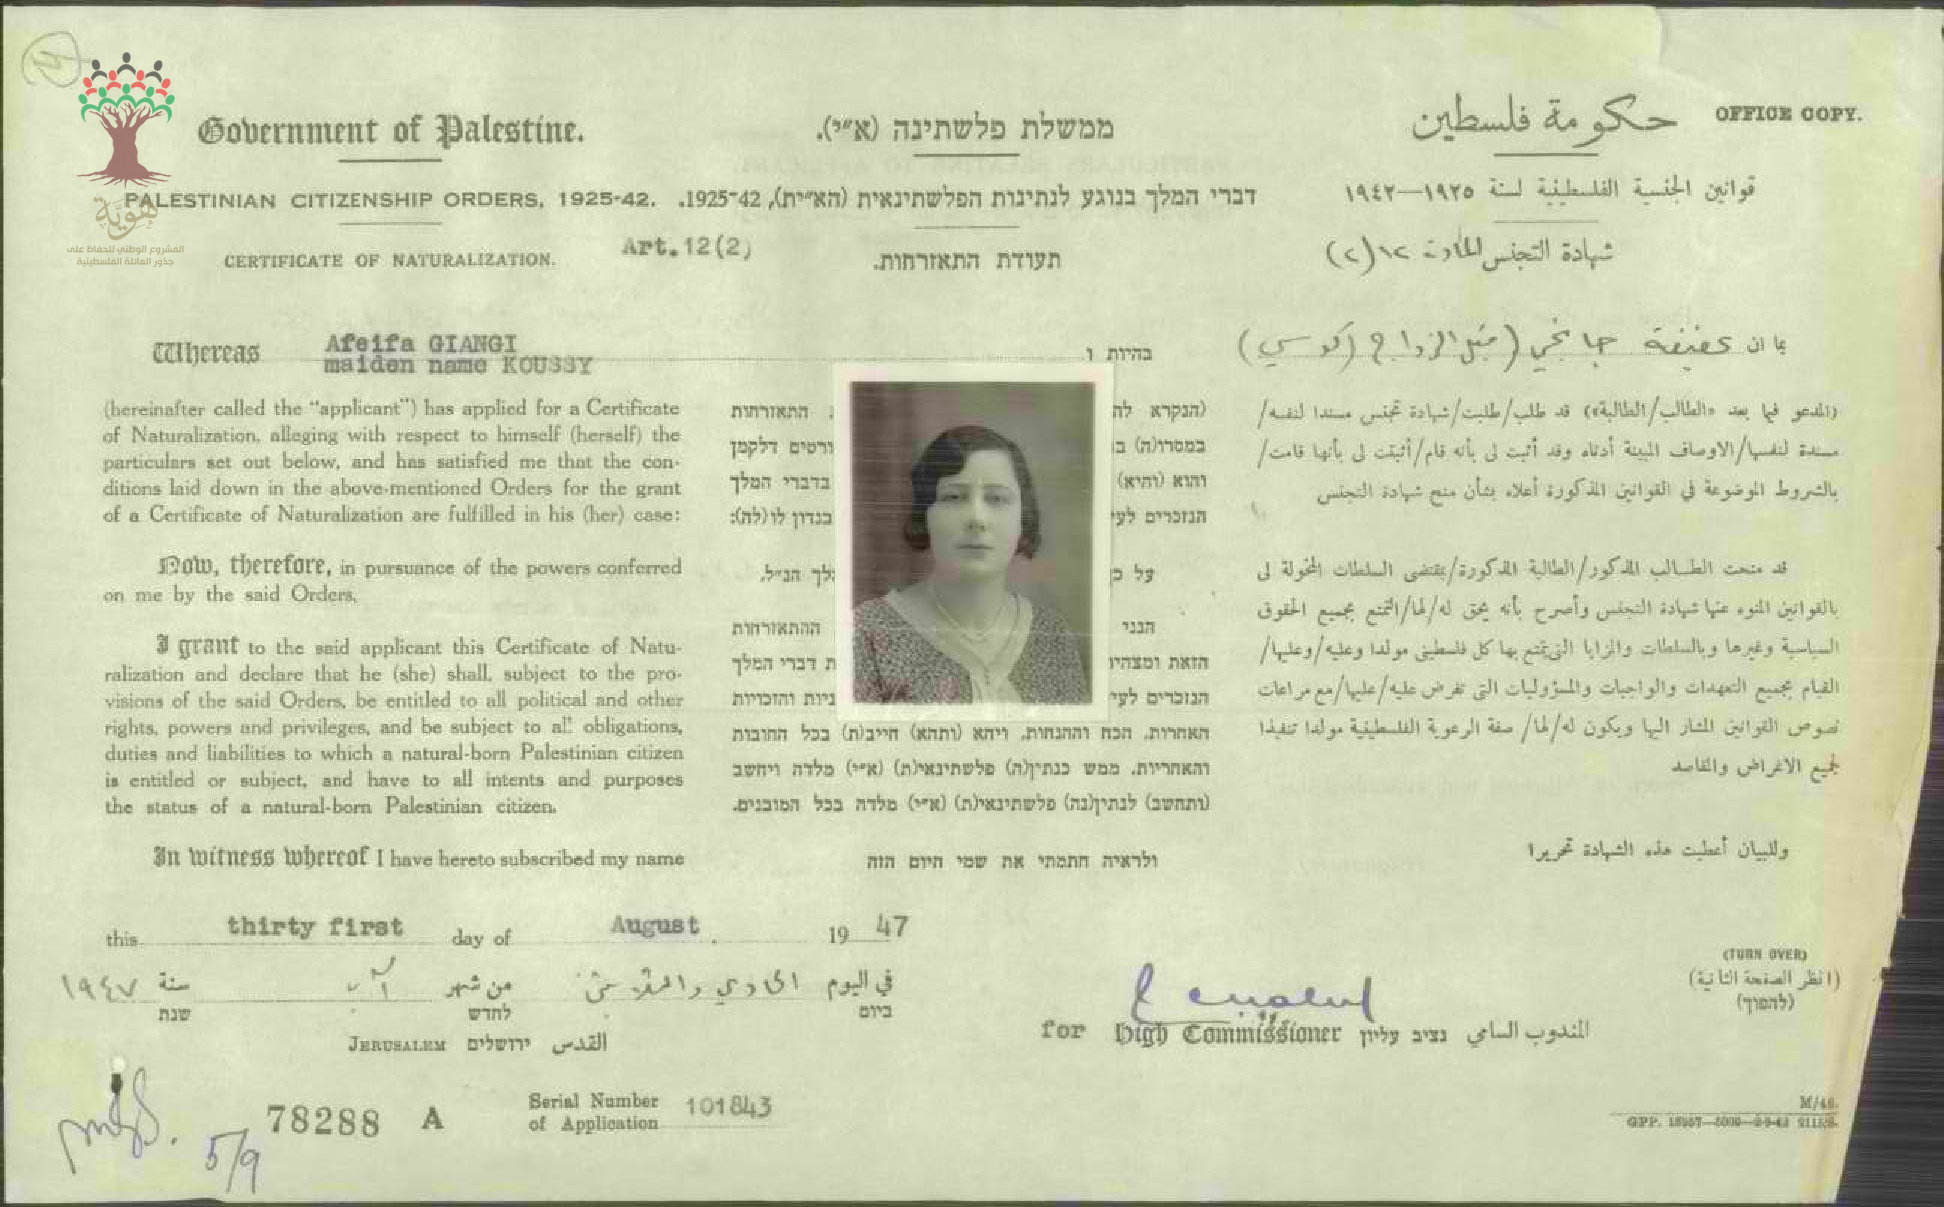 Government of Palestine.
ממשלת פלשתינה (א״י).
حكومة فلسطين
OFFICE COPY.
PALESTINIAN CITIZENSHIP ORDERS, 1925-42.
דברי המלך בנוגע לנתינות הפלשתינאית (הא״ית), 1925-42.
قوانين الجنسية الفلسطينية لسنة ١٩٢٥—١٩٤٢
هوية
المشروع الوطني للحفاظ على
جذور العائلة الفلسطينية
CERTIFICATE OF NATURALIZATION. Art.12(2)
תעודת התאזרחות.
شهادة التجنس المادة ١٢(٢)
Whereas Afeifa GIANGI
maiden name KOUSSY
(hereinafter called the “applicant”) has applied for a Certificate
of Naturalization, alleging with respect to himself (herself) the
particulars set out below, and has satisfied me that the con-
ditions laid down in the above-mentioned Orders for the grant
of a Certificate of Naturalization are fulfilled in his (her) case:
Now, therefore, in pursuance of the powers conferred
on me by the said Orders,
I grant to the said applicant this Certificate of Natu-
ralization and declare that he (she) shall, subject to the pro-
visions of the said Orders, be entitled to all political and other
rights, powers and privileges, and be subject to all obligations,
duties and liabilities to which a natural-born Palestinian citizen
is entitled or subject, and have to all intents and purposes
the status of a natural-born Palestinian citizen.
In witness whereof I have hereto subscribed my name
בהיות ו
(הנקרא התאזרחות
במסרו(ה) דלקמן
והוא (והיא) בדברי המלך
הנזכרים בנדון לו(לה):
על הנ״ל,
הנני ההתאזרחות
הזאת דברי המלך
הנזכרים והזכויות
האחרות, הכח וההנחות, ויהא (ותהא) חייב(ת) בכל החובות
והאחריות, ממש כנתין(ה) פלשתינאי(ת) (א״י) מלדה ויחשב
(ותחשב) לנתין(נה) פלשתינאי(ת) (א״י) מלדה בכל המובנים.
ולראיה חתמתי את שמי היום הזה
بما ان عفيفة جانجي (قبل الزواج كوسي)
(المدعو فيما بعد «الطالب/الطالبة») قد طلب/طلبت/شهادة تجنس مسندا لنفسه/
مسندة لنفسها/الاوصاف المبينة أدناه وقد أثبت لى بأنه قام/أثبتت لى بأنها قامت/
بالشروط الموضوعة في القوانين المذكورة أعلاه بشأن منح شهادة التجنس
قد منحت الطالب المذكور/الطالبة المذكورة/بمقتضى السلطات المخولة لى
بالقوانين المنوه عنها شهادة التجنس وأصرح بأنه يحق له/لها/التمتع بجميع الحقوق
السياسية وغيرها وبالسلطات والمزايا التى يتمتع بها كل فلسطينى مولدا وعليه/وعليها/
القيام بجميع التعهدات والواجبات والمسؤوليات التى تفرض عليه/عليها/مع مراعات
نصوص القوانين المشار اليها ويكون له/لها/ صفة الرعوية الفلسطينية مولدا تنفيذا
لجميع الاغراض والمقاصد
وللبيان أعطيت هذه الشهادة تحريرا
this thirty first day of August 19 47
في اليوم الحادي والثلاثين من شهر آب سنة ١٩٤٧
ביום לחדש שנת
JERUSALEM ירושלים القدس
for High Commissioner נציב עליון المندوب السامي
(TURN OVER)
(انظر الصفحة الثانية)
(להפוך)
78288 A
Serial Number
of Application 101843
5/9
M/46.